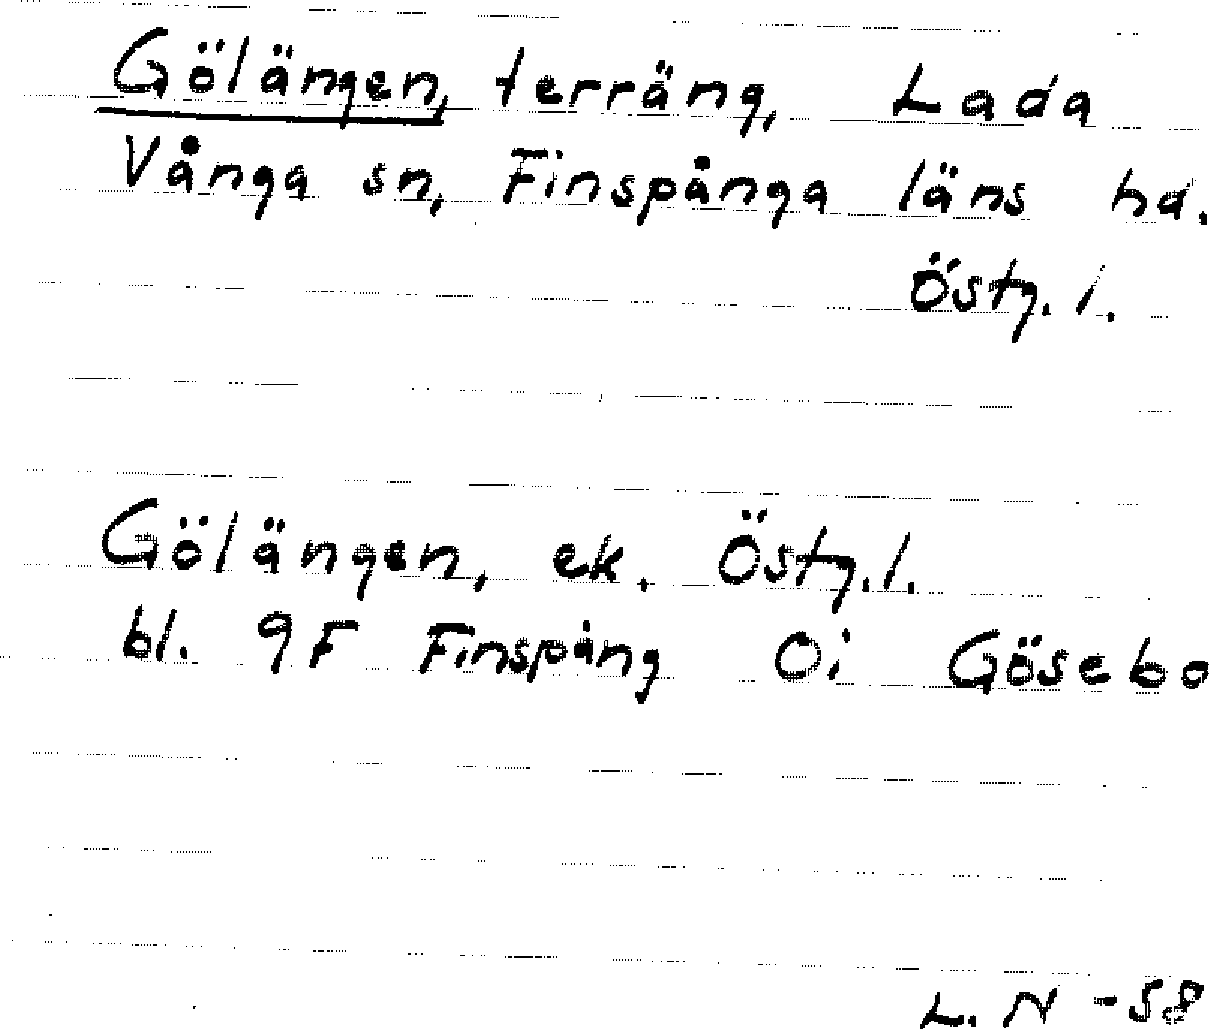 Gölängen, terräng, Lada
Vånga sn, Finspånga läns hd.
Östg. l.
Gölängen, ek. Östg. l.
bl. 9F Finspång 0i Gösebo
L. N -58